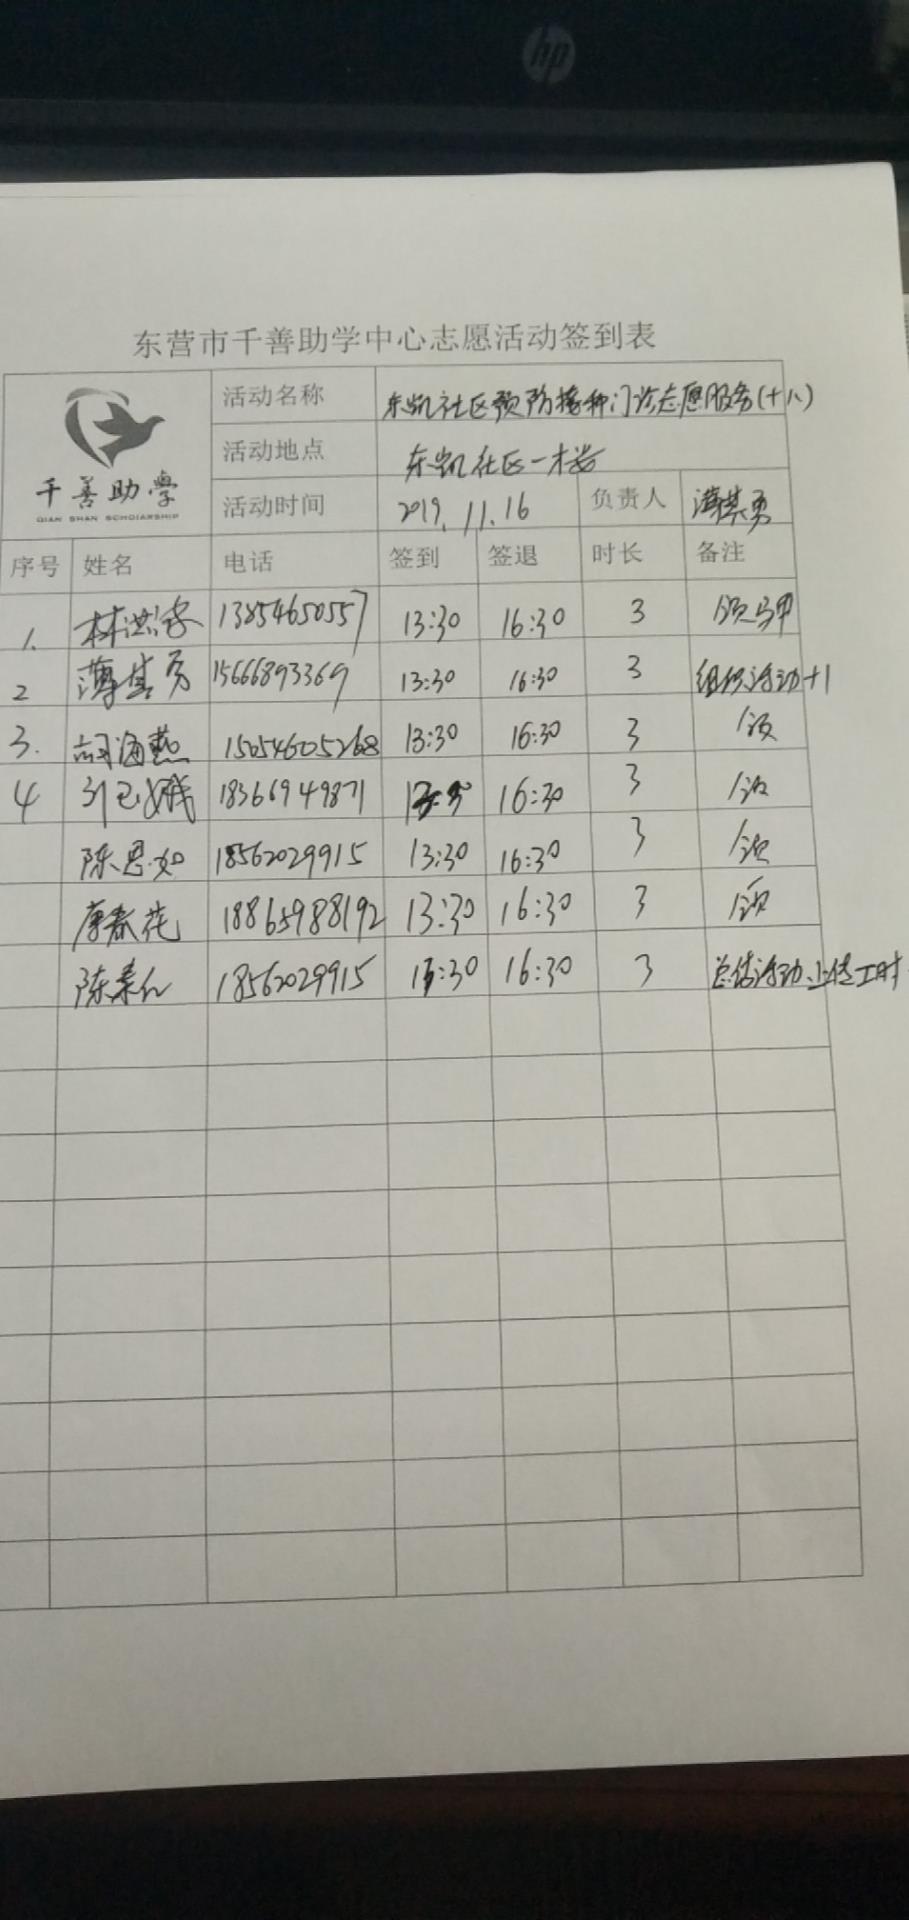 hp
东营市千善助学中心志愿活动签到表
千善助学
QIAN SHAN SCHOLARSHIP
活动名称 东凯社区预防接种门诊志愿服务(十八)
活动地点 东凯社区一楼
活动时间 2019.11.16 负责人 薄其勇
序号 姓名 电话 签到 签退 时长 备注
1. 13854650557 13:30 16:30 3 领马甲
2 薄其勇 15666893369 13:30 16:30 3 组织活动+1
3. 胡海燕 15054605268 13:30 16:30 3 领
4 18366949871 16:30 3 领
陈思如 18562029915 13:30 16:30 3 领
唐春花 18865988192 13:30 16:30 3 领
陈 18562029915 13:30 16:30 3 总结活动、上传工时